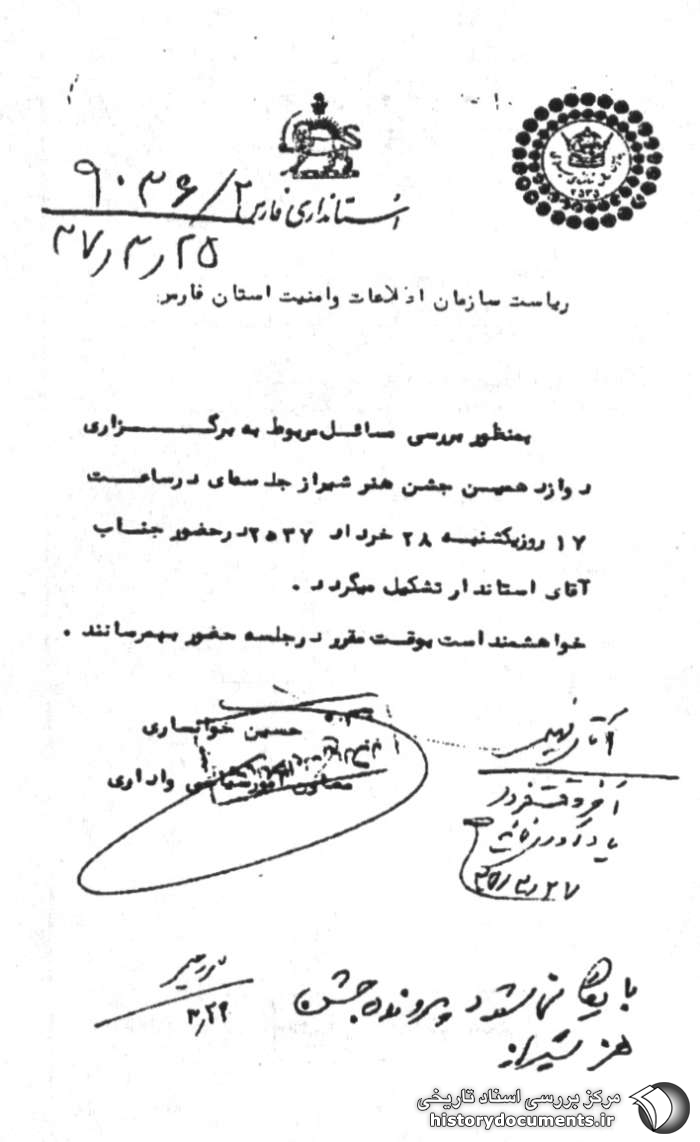 ۹۰۳۶/۲
استانداری فارس
۲۵ر۳ر۳۷
۲۵۳۵
ریاست سازمان اطلاعات وامنیت استان فارس
بمنظور بررسی مسائل مربوط به برگزاری
دوازدهمین جشن هنر شیراز جلسه‌ای درساعت
۱۷ روزیکشنبه ۲۸ خرداد ۲۵۳۷ درحضور جناب
آقای استاندار تشکیل میگردد .
خواهشمند است بوقت مقرر درجلسه حضور بهمرسانند .
حسین خوانساری
معاون امورسیاسی واداری
آقای
آخر وقت فردا
یادآوری
بایگانی شود پرونده جشن
هنر شیراز
۳ر۲۹
مرکز بررسی اسناد تاریخی
historydocuments.ir